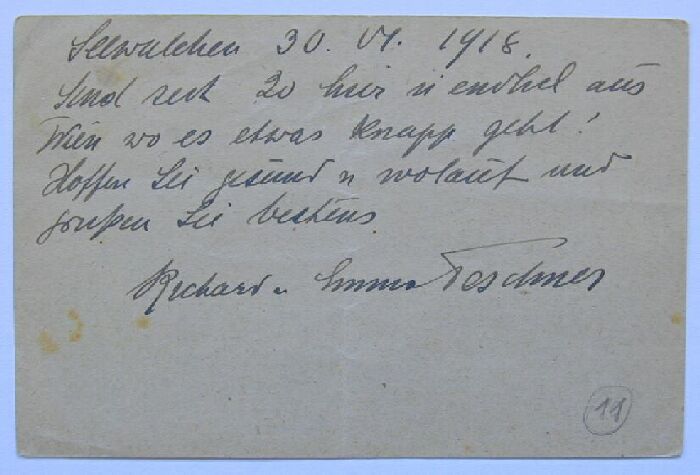 Seewalchen 30. VI. 1918.
Sind seit 20 hier u endhel aus
Wien wo es etwas knapp geht!
Hoffen Sie gesund u wolauf und
grüßen Sie bestens
Richard u Emma Teschner
11